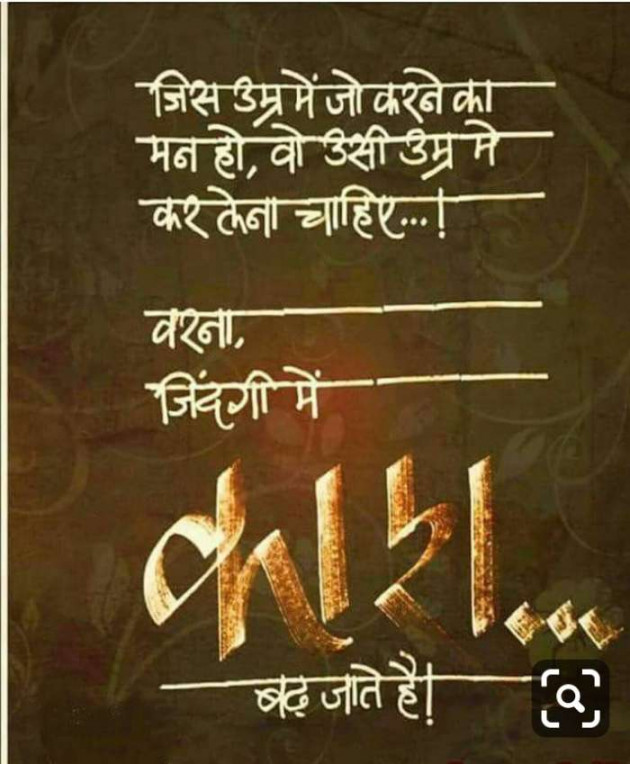 जिस उम्र में जो करने का
मन हो, वो उसी उम्र मे
कर लेना चाहिए...!
वरना,
जिंदगी में
काश...
बढ़ जाते है!